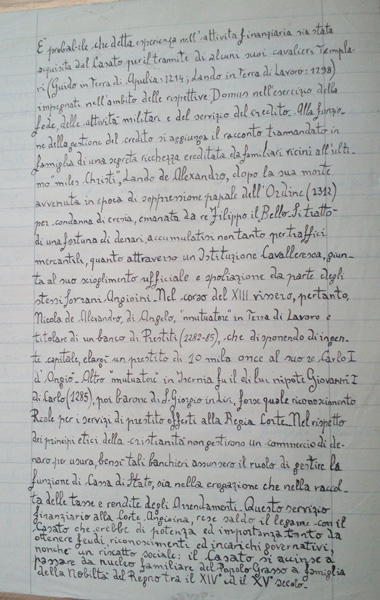 E' probabile che detta esperienza nell'attività finanziaria sia stata
acquisita dal Casato per il tramite di alcuni suoi cavalieri Templa-
ri (Guido in Terra di Apulia: 1214; Lando in Terra di Lavoro: 1298)
impegnati nell'ambito delle rispettive Domus nell'esercizio della
fede, delle attività militari e del servizio del credito. Alla funzio-
ne della gestione del credito si aggiunga il racconto tramandato in
famiglia di una segreta ricchezza ereditata da familiari vicini all'ulti-
mo "miles Christi", Lando de Alexandro, dopo la sua morte
avvenuta in epoca di soppressione papale dell'Ordine (1312)
per condanna di eresia, emanata da re Filippo il Bello. Si trattò
di una fortuna di denari, accumulatisi non tanto per traffici
mercantili, quanto attraverso un Istituzione Cavalleresca, giun-
ta al suo scioglimento ufficiale e spoliazione da parte degli
stessi sovrani Angioini. Nel corso del XIII vissero, pertanto,
Nicola de Alexandro, di Angelo, "mutuatore" in Terra di Lavoro e
titolare di un banco di Prestiti (1282-85), che disponendo di ingen-
te capitale, elargì un prestito di 10 mila once al suo re Carlo I
d'Angiò. Altro "mutuatore" in Isernia fu il di lui nipote Giovanni I
di Carlo (1285), poi barone di S. Giorgio in Liri, forse quale riconoscimento
Reale per i servizi di prestito offerti alla Regia Corte. Nel rispetto
dei principi etici della cristianità non gestirono un commercio di de-
naro per usura, bensì tali banchieri assunsero il ruolo di gestire la
funzione di Cassa di Stato, sia nella erogazione che nella raccol-
ta delle tasse e rendite degli Arrendamenti. Questo servizio
finanziario alla Corte Angioina, rese saldo il legame con il
Casato che crebbe di potenza ed importanza tanto da
ottenere feudi, riconoscimenti ed incarichi governativi,
nonchè un riscatto sociale: il Casato si avvinse a
passare da nucleo familiare del Popolo Grasso a famiglia
della Nobiltà del Regno tra il XIV° ed il XV° secolo.